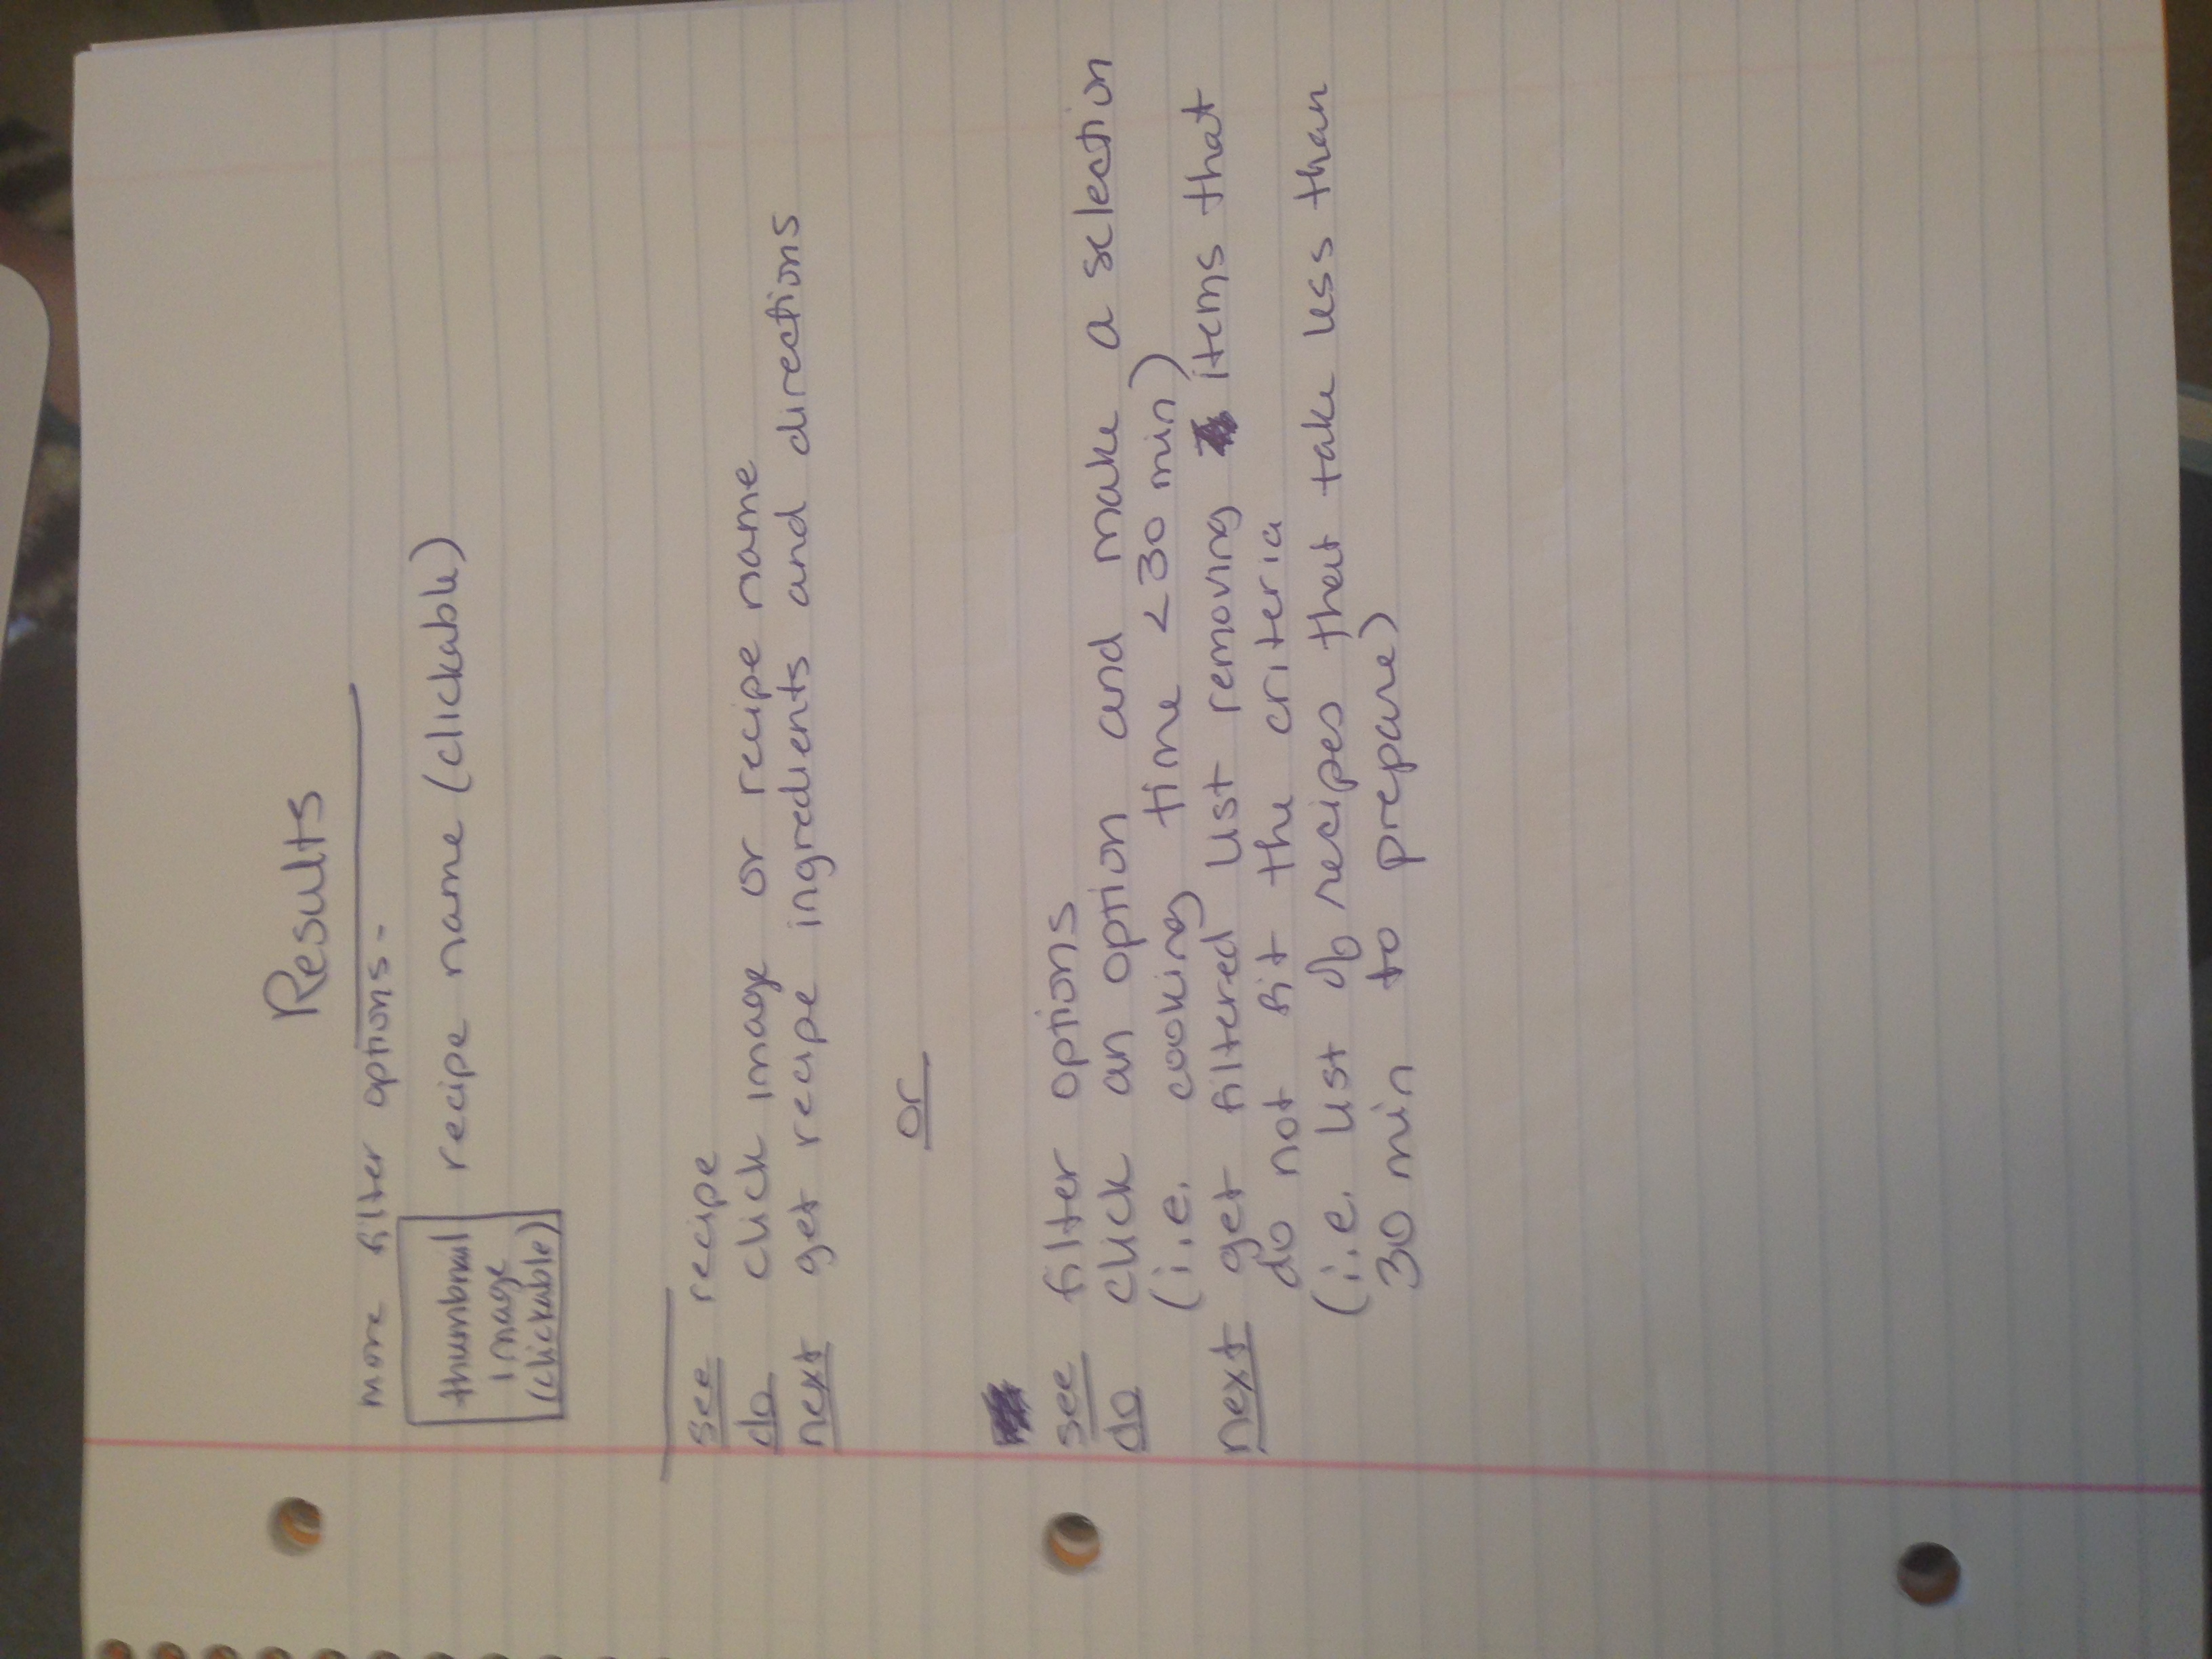 Results
more filter options-
thumbnail
image
(clickable)
recipe name (clickable)
see recipe
do click image or recipe name
next get recipe ingredients and directions
or
see filter options
do click an option and make a selection
(i.e. cooking time <30 min)
next get filtered list removing items that
do not fit the criteria
(i.e. list of recipes that take less than
30 min to prepare)